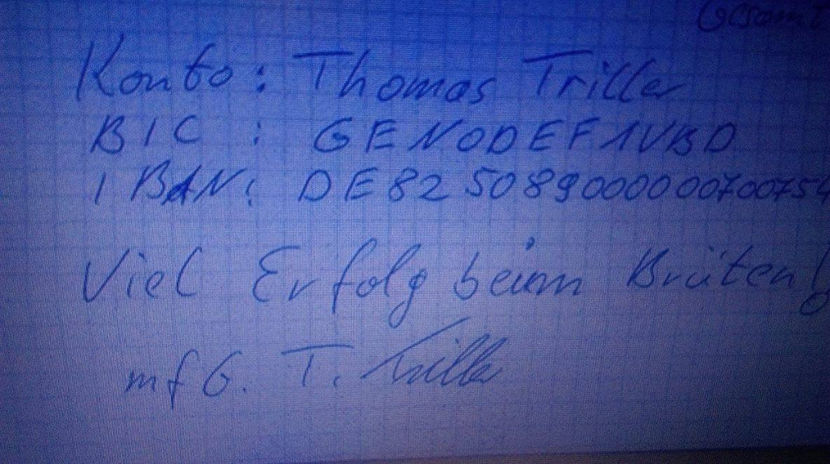 Gesamt
Konto: Thomas Triller
BIC : GENODEF1VBD
IBAN: DE82508900000000700754
Viel Erfolg beim Brüten!
mfG. T. Triller